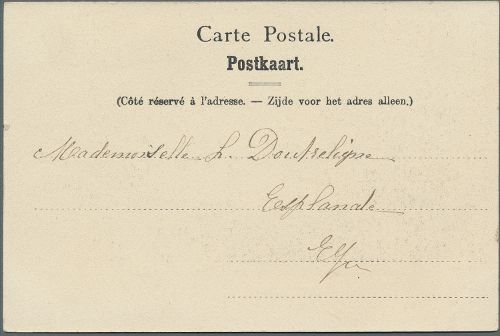 Carte Postale.
Postkaart.
(Côté réservé à l'adresse. — Zijde voor het adres alleen.)
Mademoiselle L. Doutreligne
Esplanade